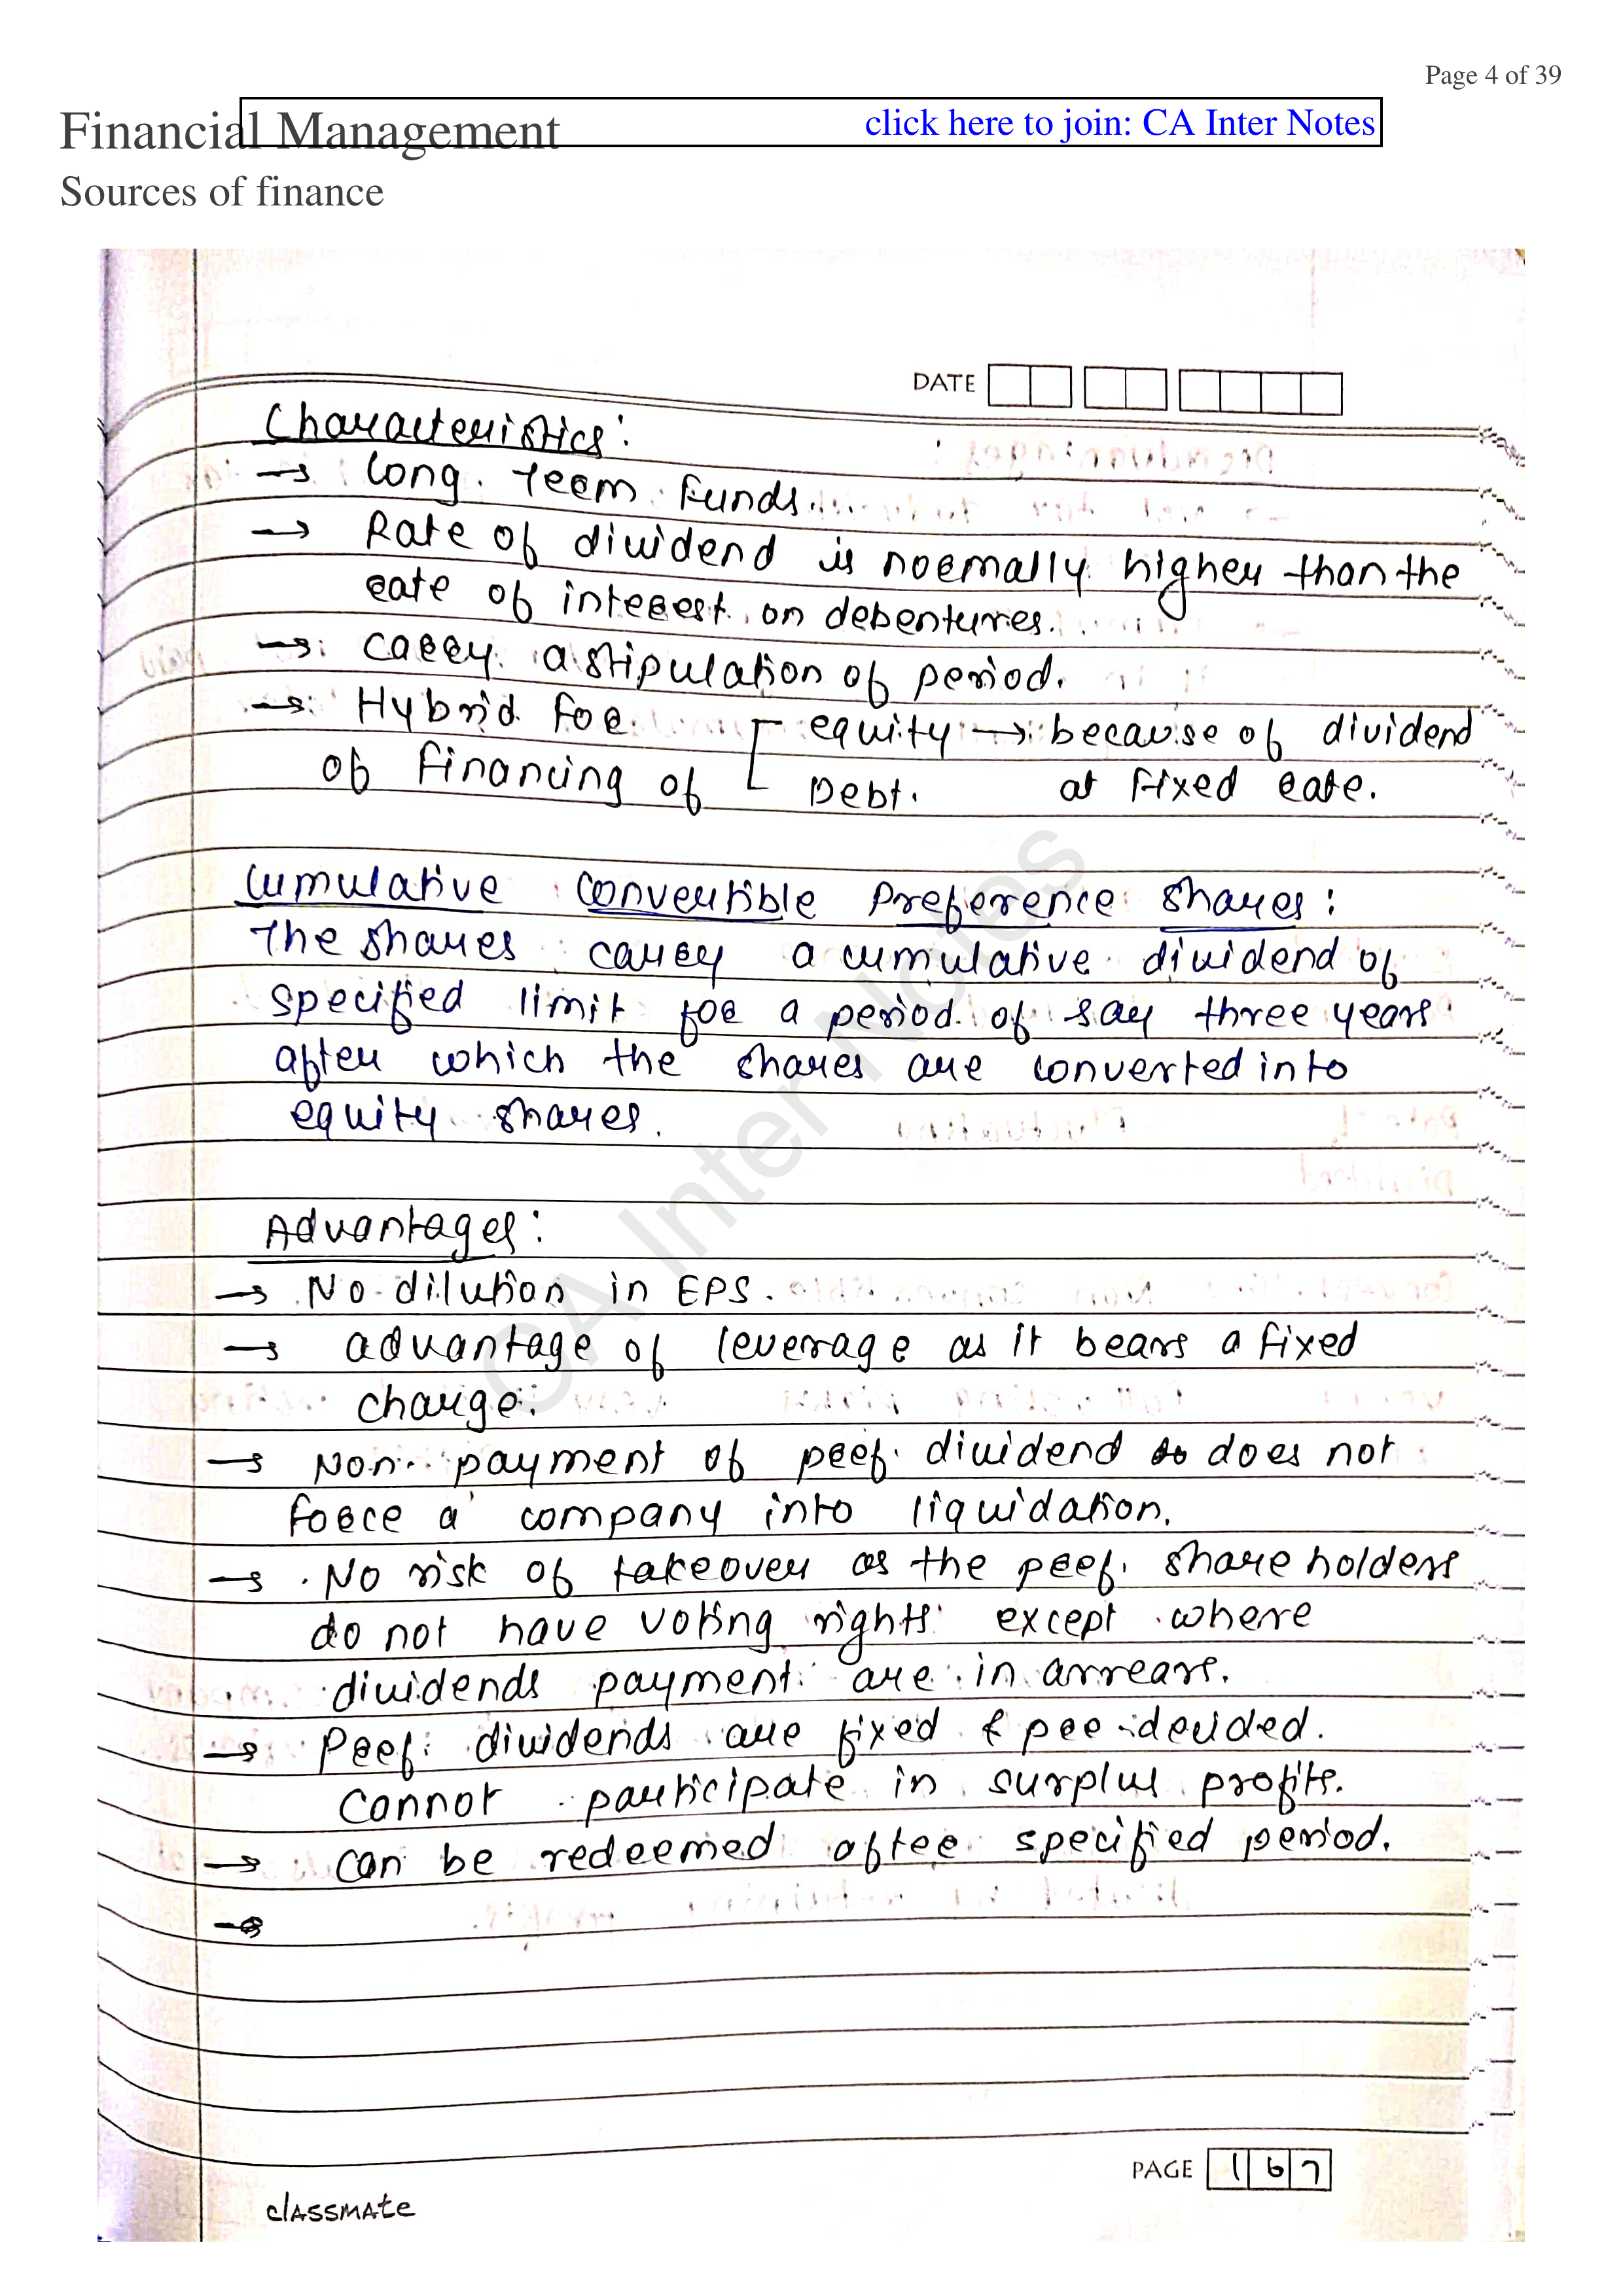 Page 4 of 39
Financial Management
click here to join: CA Inter Notes
Sources of finance
DATE
Characteristics:
→ Long Term Funds.
→ Rate of dividend is normally higher than the
rate of interest on debentures.
→ Carry a stipulation of period.
→ Hybrid for equity → because of dividend
of financing of Debt. at fixed rate.
Cumulative Convertible Preference Shares:
The shares carry a cumulative dividend of
specified limit for a period of say three years
after which the shares are converted into
equity shares.
Advantages:
→ No dilution in EPS.
→ advantage of leverage as it bears a fixed
charge.
→ Non payment of pref. dividend does not
force a company into liquidation.
→ No risk of takeover as the pref. share holders
do not have voting rights except where
dividends payment are in arrears.
→ Pref. dividends are fixed & pre-decided.
Cannot participate in surplus profits.
→ can be redeemed after specified period.
→
CA Inter Notes
PAGE 167
classmate